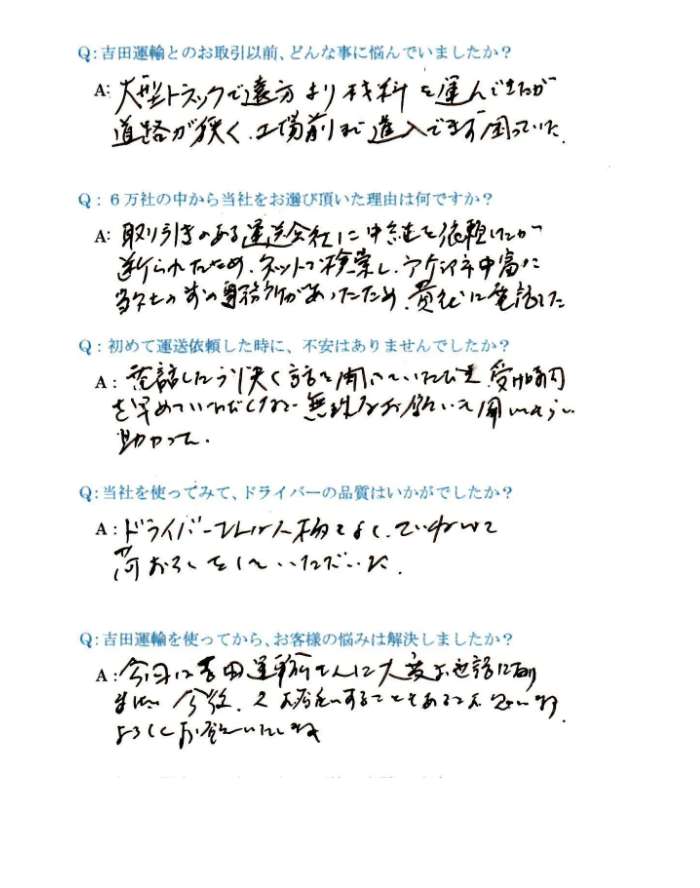 Q:吉田運輸とのお取引以前、どんな事に悩んでいましたか？
A: 大型トラックで遠方より材料を運んできたが
道路が狭く、工場前まで進入できず困っていた。
Q：６万社の中から当社をお選び頂いた理由は何ですか？
A: 取り引きのある運送会社に中継を依頼したが
断られたため、ネットで検索し、
当社の事務所があったため、貴社に電話した
Q：初めて運送依頼した時に、不安はありませんでしたか？
A: 電話したら快く話を聞いていただき 受け時間
を早めていただくなど無理なお願いも聞いてもらい
助かった。
Q:当社を使ってみて、ドライバーの品質はいかがでしたか？
A: ドライバーさんは人柄もよく、ていねいに
荷おろしをしていただいた。
Q:吉田運輸を使ってから、お客様の悩みは解決しましたか？
A: 今回は吉田運輸さんに大変お世話になり
ました 今後、又お願いすることもあると思います
よろしくお願いいたします